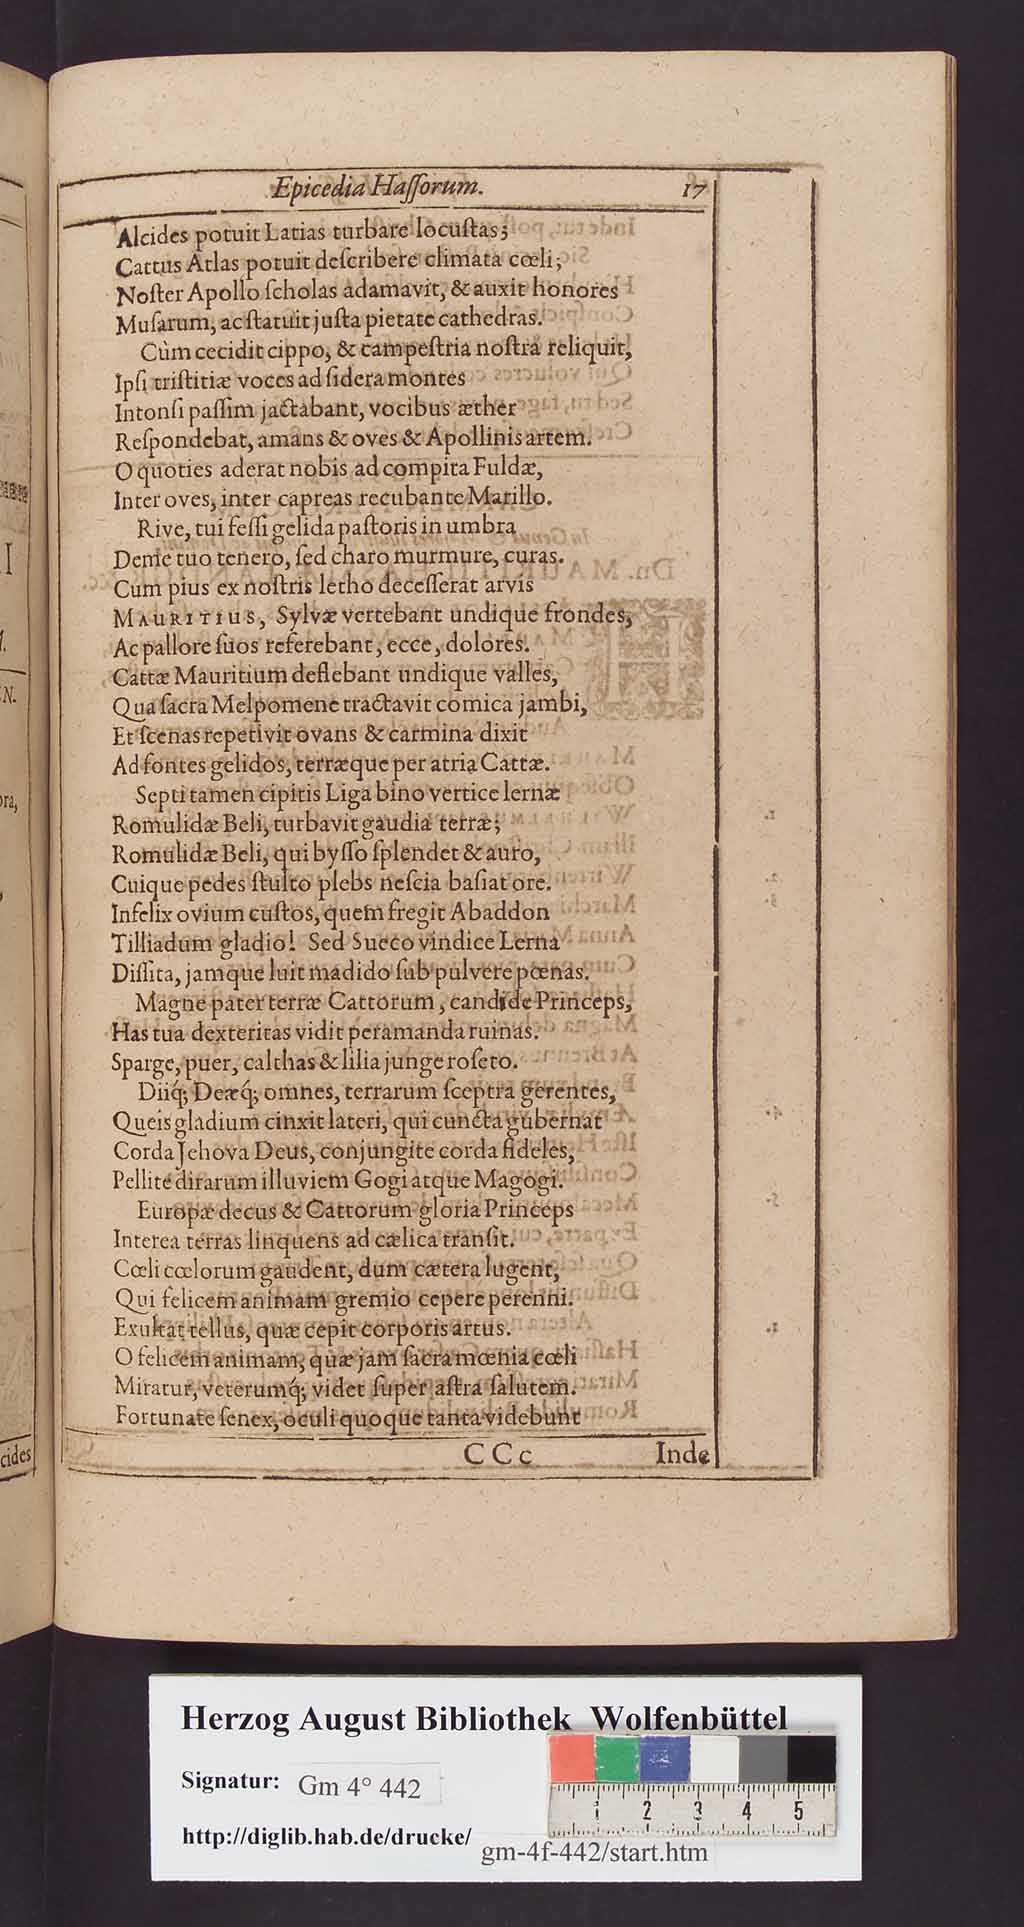 Epicedia Hassorum. 17
Alcides potuit Latias turbare locustas;
Cattus Atlas potuit describere climata cœli;
Noster Apollo scholas adamavit, & auxit honores
Musarum, ac statuit justa pietate cathedras.
Cùm cecidit cippo, & campestria nostra reliquit,
Ipsi tristitiæ voces ad sidera montes
Intonsi passim jactabant, vocibus æther
Respondebat, amans & oves & Apollinis artem.
O quoties aderat nobis ad compita Fuldæ,
Inter oves, inter capreas recubante Marillo.
Rive, tui fessi gelida pastoris in umbra
Deme tuo tenero, sed charo murmure, curas.
Cum pius ex nostris letho decesserat arvis
MAURITIUS, Sylvæ vertebant undique frondes,
Ac pallore suos referebant, ecce, dolores.
Cattæ Mauritium deflebant undique valles,
Qua sacra Melpomene tractavit comica jambi,
Et scenas repetivit ovans & carmina dixit
Ad fontes gelidos, terræque per atria Cattæ.
Septi tamen cipitis Liga bino vertice lernæ
Romulidæ Beli, turbavit gaudia terræ;
Romulidæ Beli, qui bysso splendet & auro,
Cuique pedes stulto plebs nescia basiat ore.
Infelix ovium custos, quem fregit Abaddon
Tilliadum gladio! Sed Sueco vindice Lerna
Dissita, jamque luit madido sub pulvere pœnas.
Magne pater terræ Cattorum, candide Princeps,
Has tua dexteritas vidit peramanda ruinas.
Sparge, puer, calthas & lilia junge roseto.
Diiq́; Deæq́; omnes, terrarum sceptra gerentes,
Queis gladium cinxit lateri, qui cuncta gubernat
Corda Jehova Deus, conjungite corda fideles,
Pellite dirarum illuviem Gogi atque Magogi.
Europæ decus & Cattorum gloria Princeps
Interea terras linquens ad cælica transit.
Cœli cœlorum gaudent, dum cætera lugent,
Qui felicem animam gremio cepere perenni.
Exultat tellus, quæ cepit corporis artus.
O felicem animam, quæ jam sacra mœnia cœli
Miratur, veterumq́; videt super astra salutem.
Fortunate senex, oculi quoque tanta videbunt
CCc Inde
cides
Herzog August Bibliothek Wolfenbüttel
Signatur: Gm 4° 442
http://diglib.hab.de/drucke/ gm-4f-442/start.htm
1 2 3 4 5